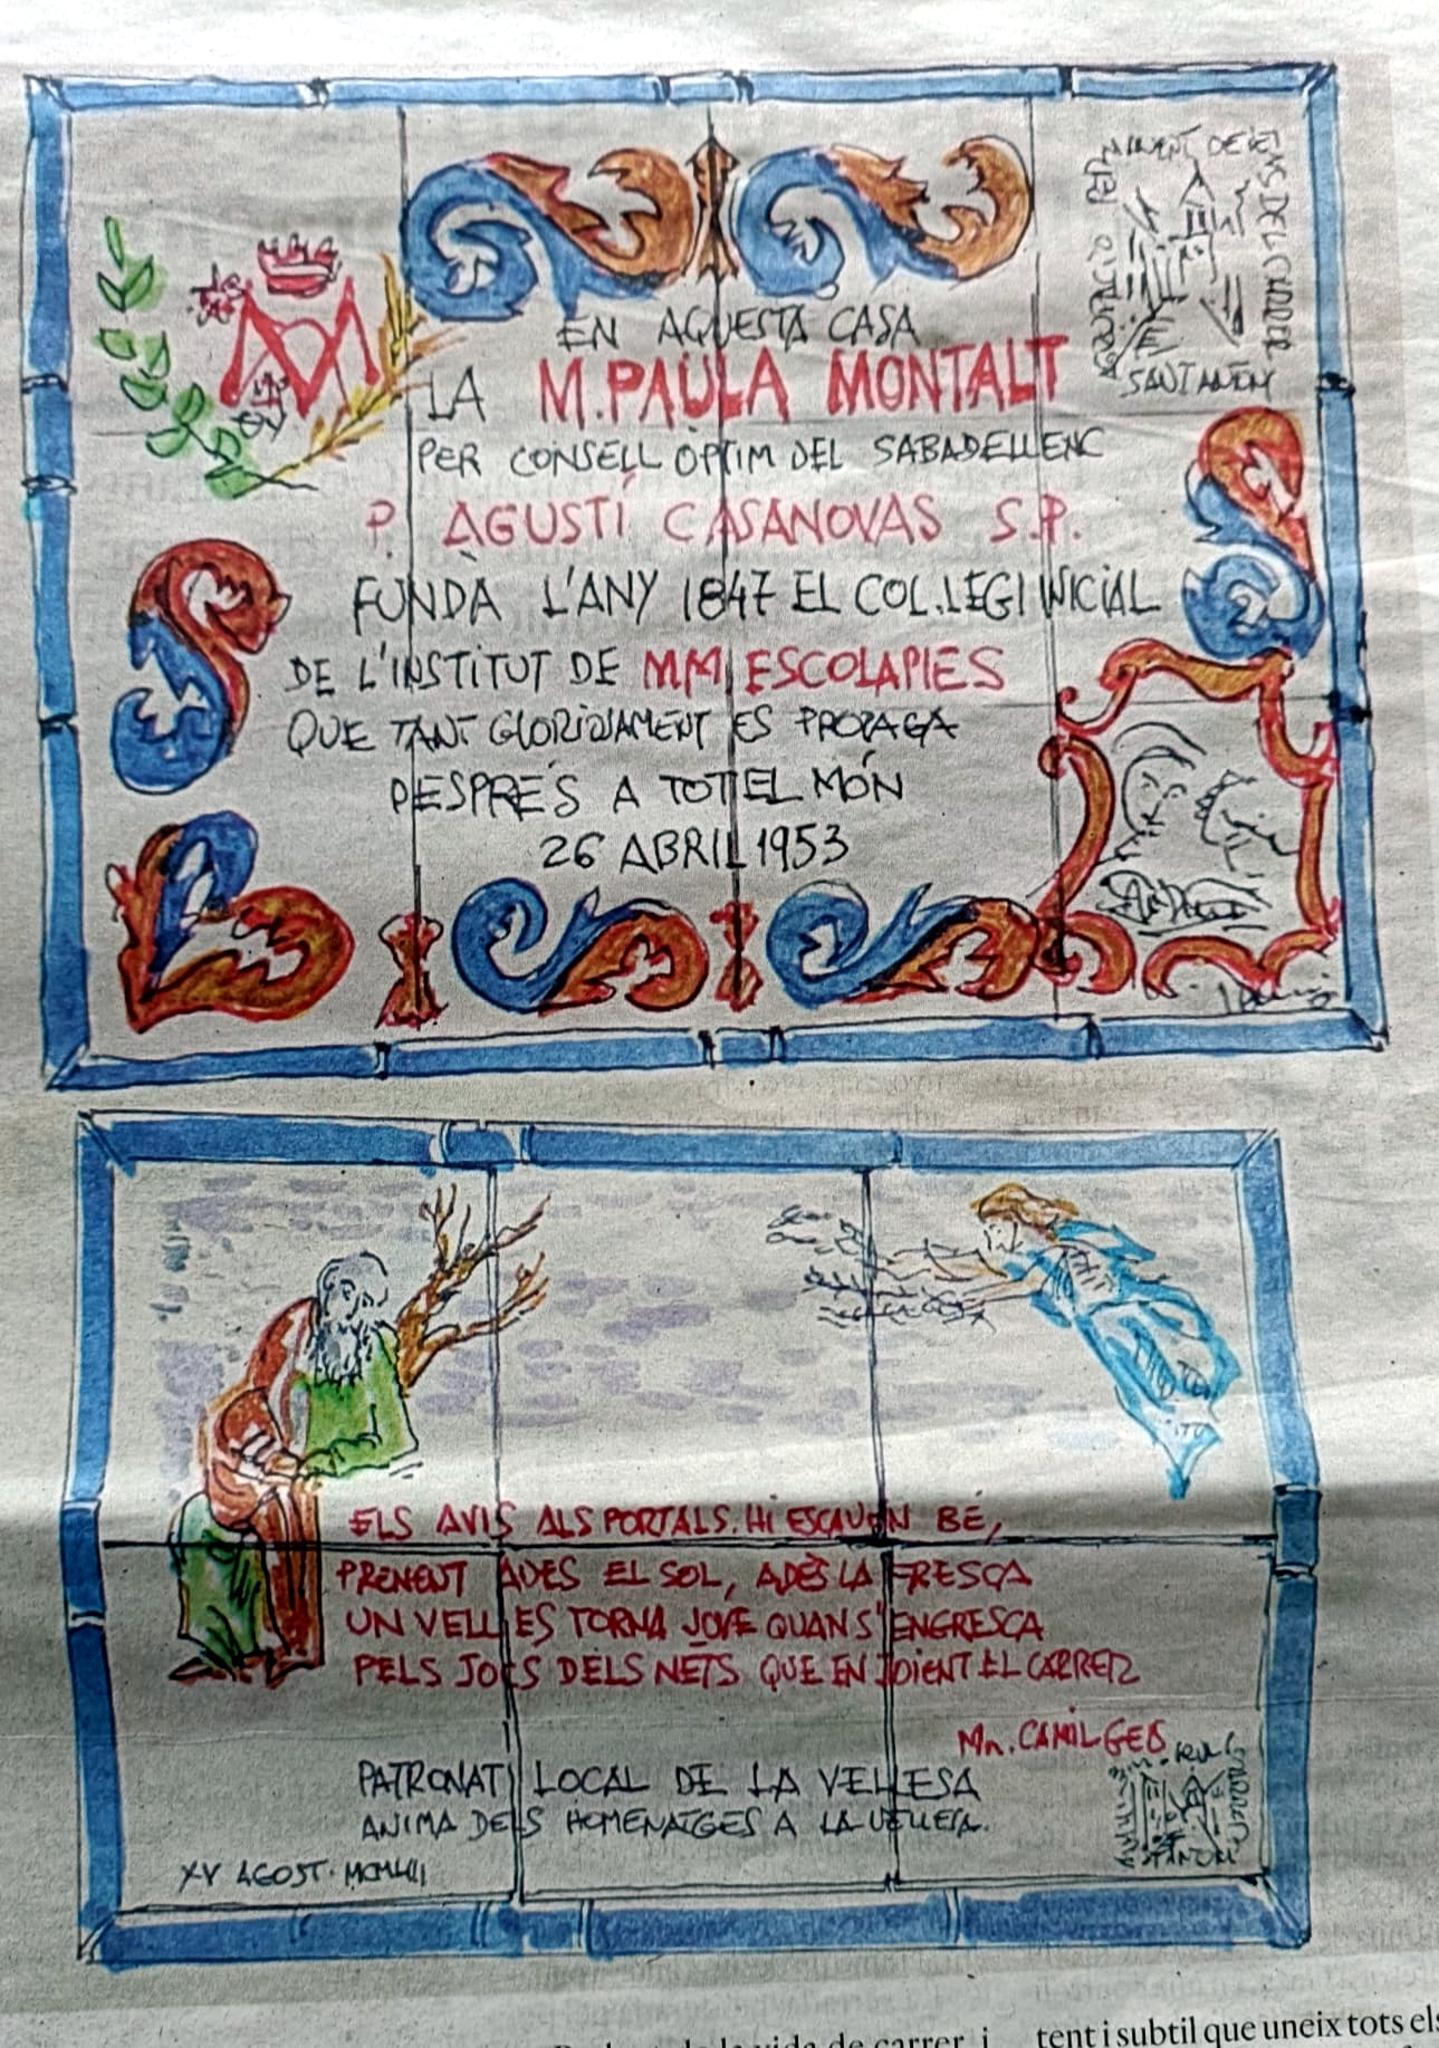 EN AQUESTA CASA
LA M. PAULA MONTALT
PER CONSELL ÒPTIM DEL SABADELLENC
P. AGUSTÍ CASANOVAS S.P.
FUNDÀ L'ANY 1847 EL COL.LEGI INICIAL
DE L'INSTITUT DE MM ESCOLAPIES
QUE TANT GLORIOSAMENT ES PROPAGA
DESPRÉS A TOT EL MÓN
26 ABRIL 1953
DEL CARRER
SANT ANTONI
ELS AVIS ALS PORTALS. HI ESCAUEN BÉ,
PRENENT ADES EL SOL, ADÈS LA FRESCA
UN VELL ES TORNA JOVE QUAN S'ENGRESCA
PELS JOCS DELS NÉTS QUE ENJOIENT EL CARRER
Mn. CAMIL GEIS
PATRONAT LOCAL DE LA VELLESA
ANIMA DELS HOMENATGES A LA VELLESA.
XV AGOST. MCMLII
la vida de carrer, i
tent i subtil que uneix tots els